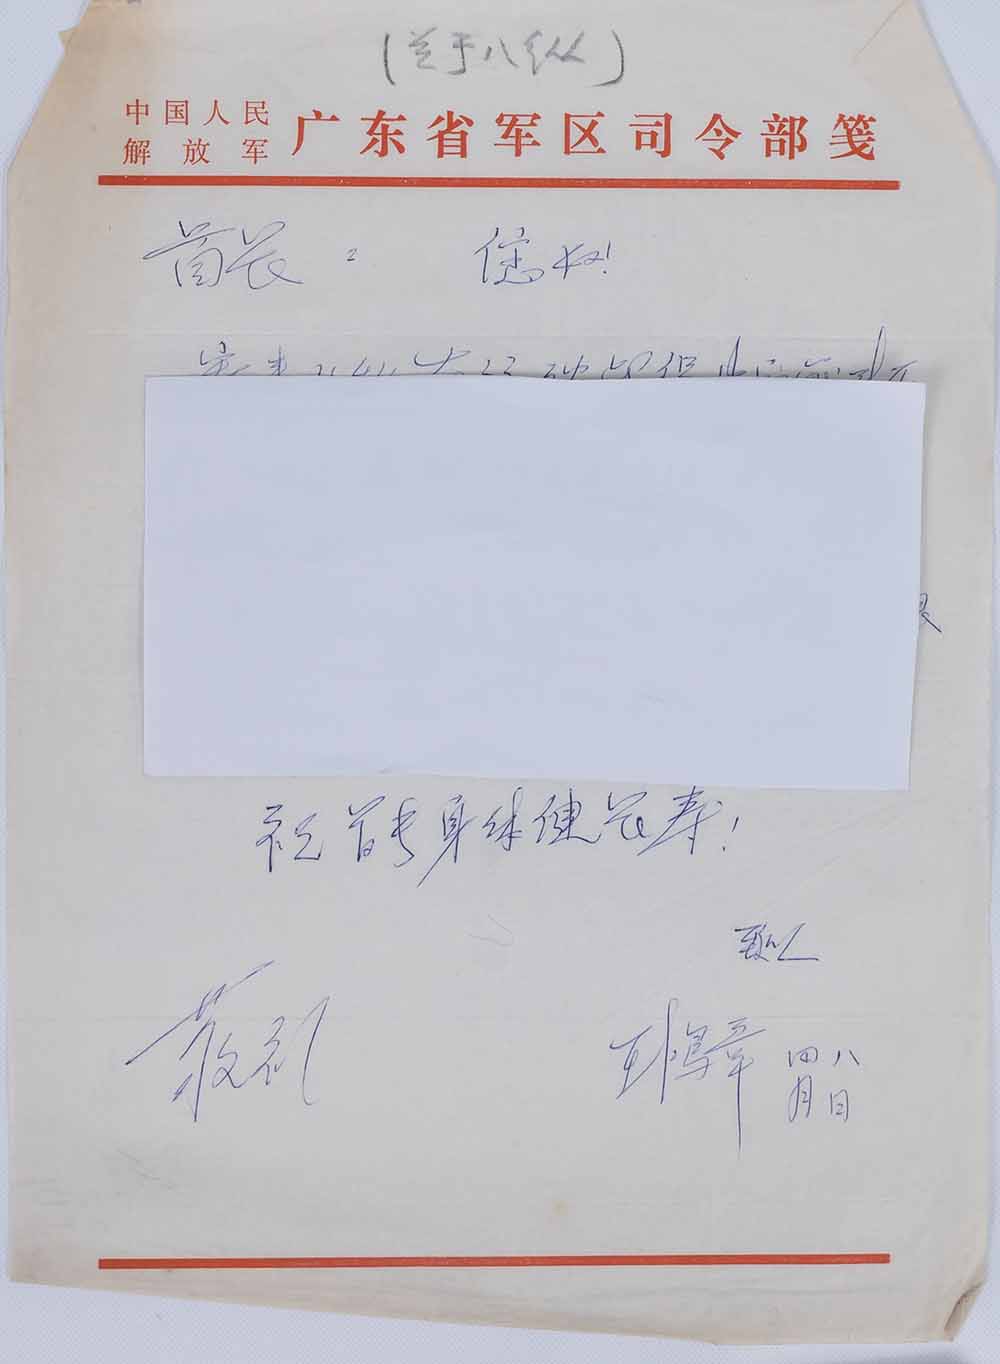 (关于八纵)
中国人民
解放军
广东省军区司令部笺
首长： 您好！
祝首长身体健长寿！
致以
敬礼
四月
八日